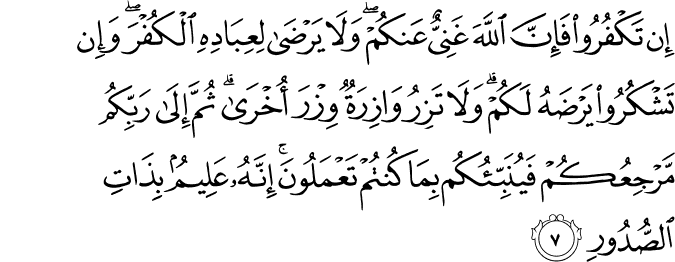 إِن تَكْفُرُوا۟ فَإِنَّ ٱللَّهَ غَنِىٌّ عَنكُمْ ۖ وَلَا يَرْضَىٰ لِعِبَادِهِ ٱلْكُفْرَ ۖ وَإِن
تَشْكُرُوا۟ يَرْضَهُ لَكُمْ ۗ وَلَا تَزِرُ وَازِرَةٌ وِزْرَ أُخْرَىٰ ۗ ثُمَّ إِلَىٰ رَبِّكُم
مَّرْجِعُكُمْ فَيُنَبِّئُكُم بِمَا كُنتُمْ تَعْمَلُونَ ۚ إِنَّهُۥ عَلِيمٌۢ بِذَاتِ
ٱلصُّدُورِ ٧